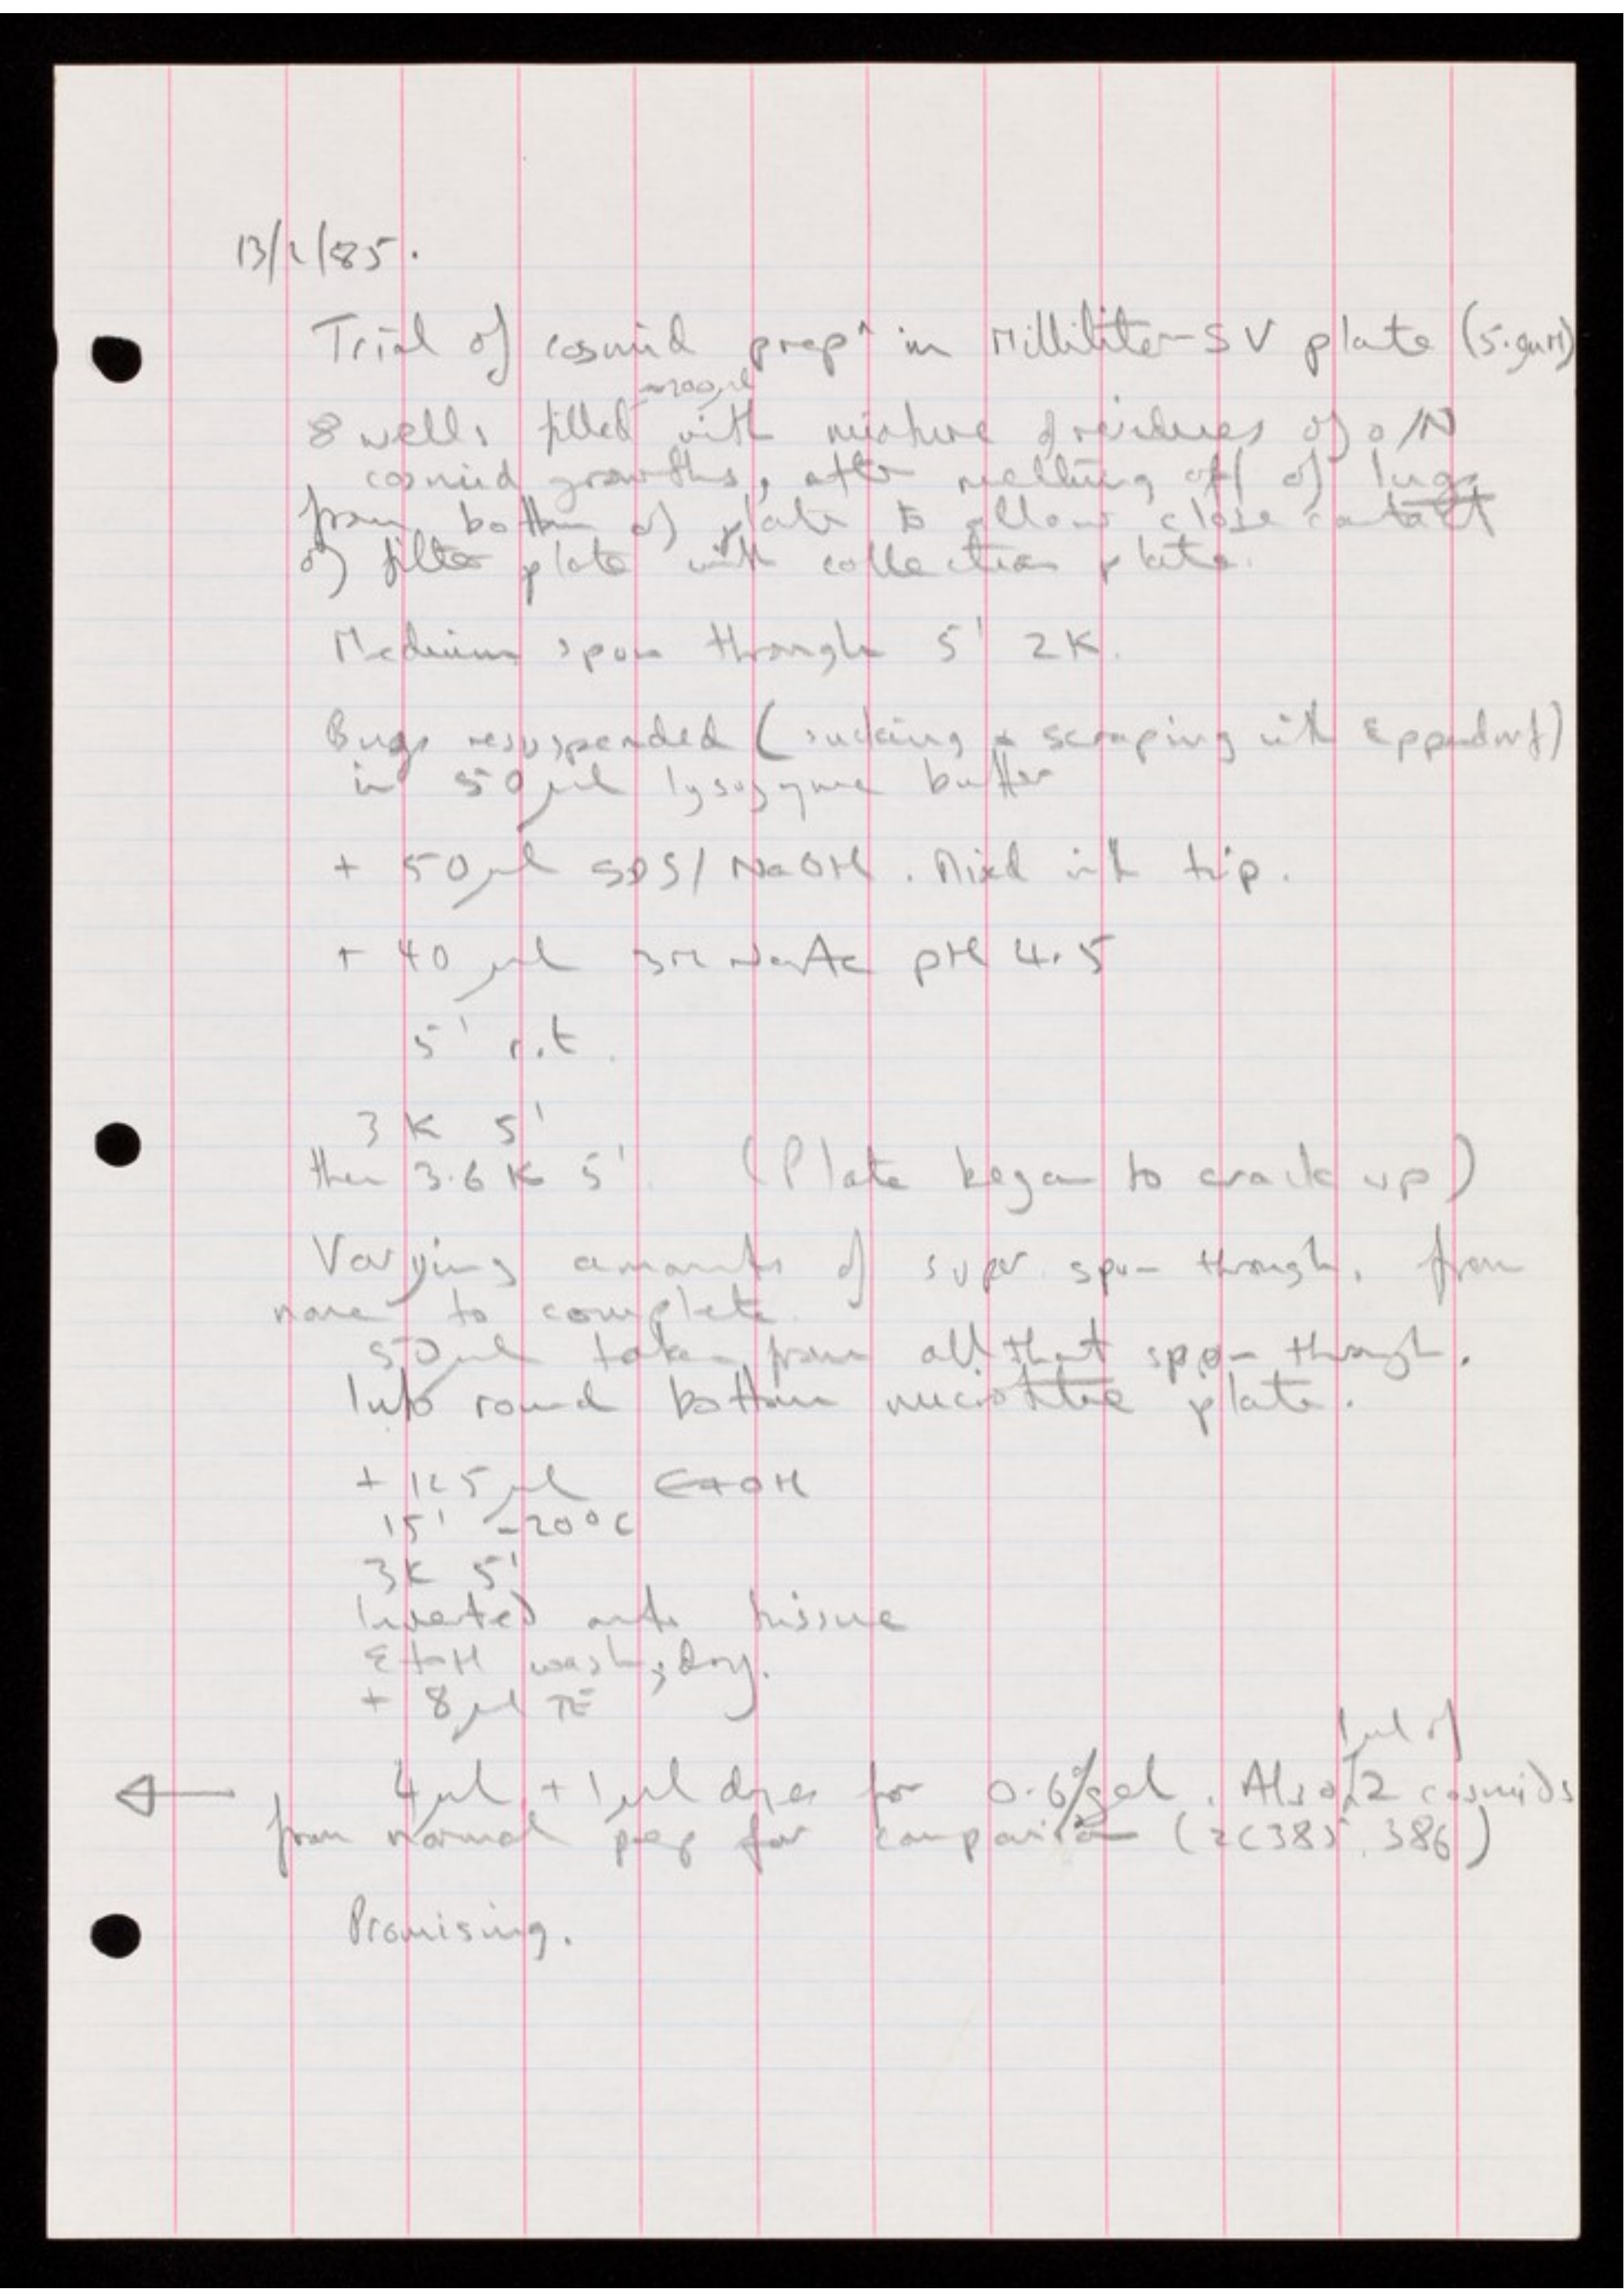 13/2/85.
Trial of cosmid prep^n in Millititer-SV plate (5·0µM)
~200µl
8 wells filled with mixture of residues of o/N
cosmid growths, after melting off of lugs
from bottom of plate to allow close contact
of filter plate with collection plate.
Medium spun through 5' 2K.
Bugs resuspended (sucking + scraping with Eppendorf)
in 50µl lysozyme buffer
+ 50µl SDS/NaOH. Mixed with tip.
+ 40 µl 3M NaAc pH 4.5
5' r.t.
3K 5'
then 3.6K 5'. (Plate began to crack up)
Varying amounts of super spun through, from
none to complete.
50µl taken from all that spun through.
Into round bottom microtitre plate.
+ 125µl EtOH
15' -20°C
3K 5'
Inverted onto tissue
EtOH wash, dry.
+ 8µl TE
1µl of
4µl + 1µl dyes for 0.6% gel. Also 2 cosmids
from normal prep for comparison (ZC385, 386)
Promising.